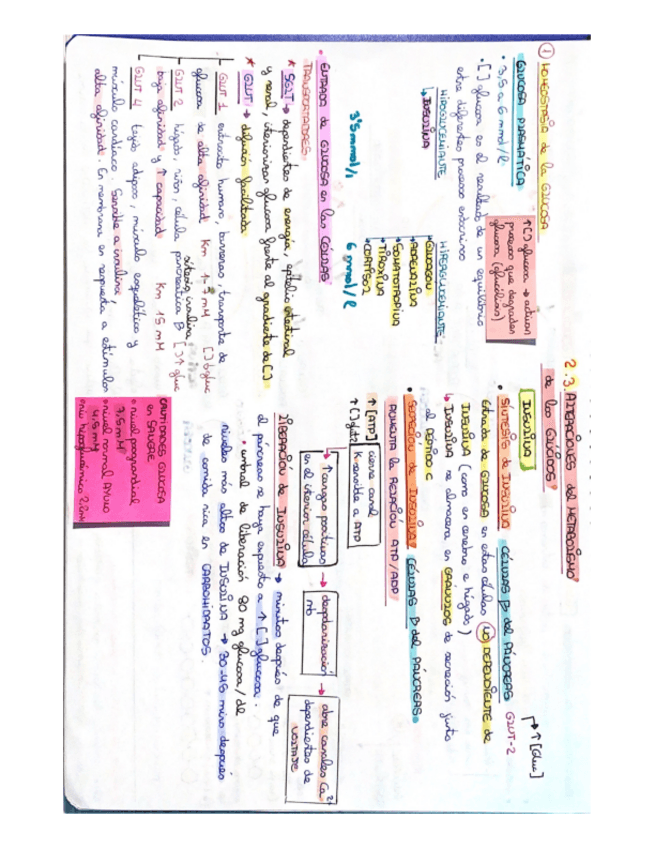 2.3. ALTERACIONES del METABOLISMO
de los GLÚCIDOS
① HOMEOSTASIA de la GLUCOSA
GLUCOSA PLASMÁTICA
· 3,5 a 6 mmol/l
· [ ] glucosa es el resultado de un equilibrio
entre diferentes procesos endocrinos
↑[ ] glucosa → actúan
procesos que degraden
glucosa (glucólisis)
HIPOGLUCEMIANTE
↳ INSULINA
HIPERGLUCEMIANTE
GLUCAGÓN
ADRENALINA
SOMATOTROPINA
TIROXINA
CORTISOL
3'5 mmol/l
6 mmol/l
· ENTRADA de GLUCOSA en las CÉLULAS
TRANSPORTADORES
* SGLT → dependientes de energía, epitelio intestinal
y renal, interiorizan glucosa frente al gradiente de [ ]
* GLUT → difusión facilitada
GLUT 1 eritrocito humano, barreras transporte de
glucosa de alta afinidad Km 1-7 mM
síntesis insulina
GLUT 2 hígado, riñón, célula pancreática β [ ]↑ gluc
baja afinidad y ↑ capacidad Km 15 mM
GLUT 4 tejido adiposo, músculo esquelético y
músculo cardíaco. Sensible a insulina
alta afinidad. En membrana en respuesta a estímulos
INSULINA
↑[Gluc]
· SÍNTESIS de INSULINA CÉLULAS β del PÁNCREAS GLUT-2
Entrada de GLUCOSA en estas células NO DEPENDIENTE de
INSULINA (como en cerebro e hígado)
↳ INSULINA se almacena en GRÁNULOS de secreción junto
al PÉPTIDO C
· SECRECIÓN de INSULINA CÉLULAS β del PÁNCREAS
AUMENTA la RELACIÓN ATP/ADP
↑ [ATP] cierre canal
K-sensible a ATP
↑ cargas positivas
en el interior célula
→ despolarización
mb
→ abre canales Ca²⁺
dependientes de
VOLTAJE
LIBERACIÓN de INSULINA → minutos después de que
el páncreas se haya expuesto a ↑ [ ] glucosa.
· umbral de liberació 80 mg glucosa/dl
niveles más altos de INSULINA → 30-45 mins después
de comida rica en CARBOHIDRATOS.
CANTIDADES GLUCOSA
en SANGRE
· nivel posprandrial
7,5 mM
· nivel normal AYUNO
4,5 mM
· niv hipoglucémico